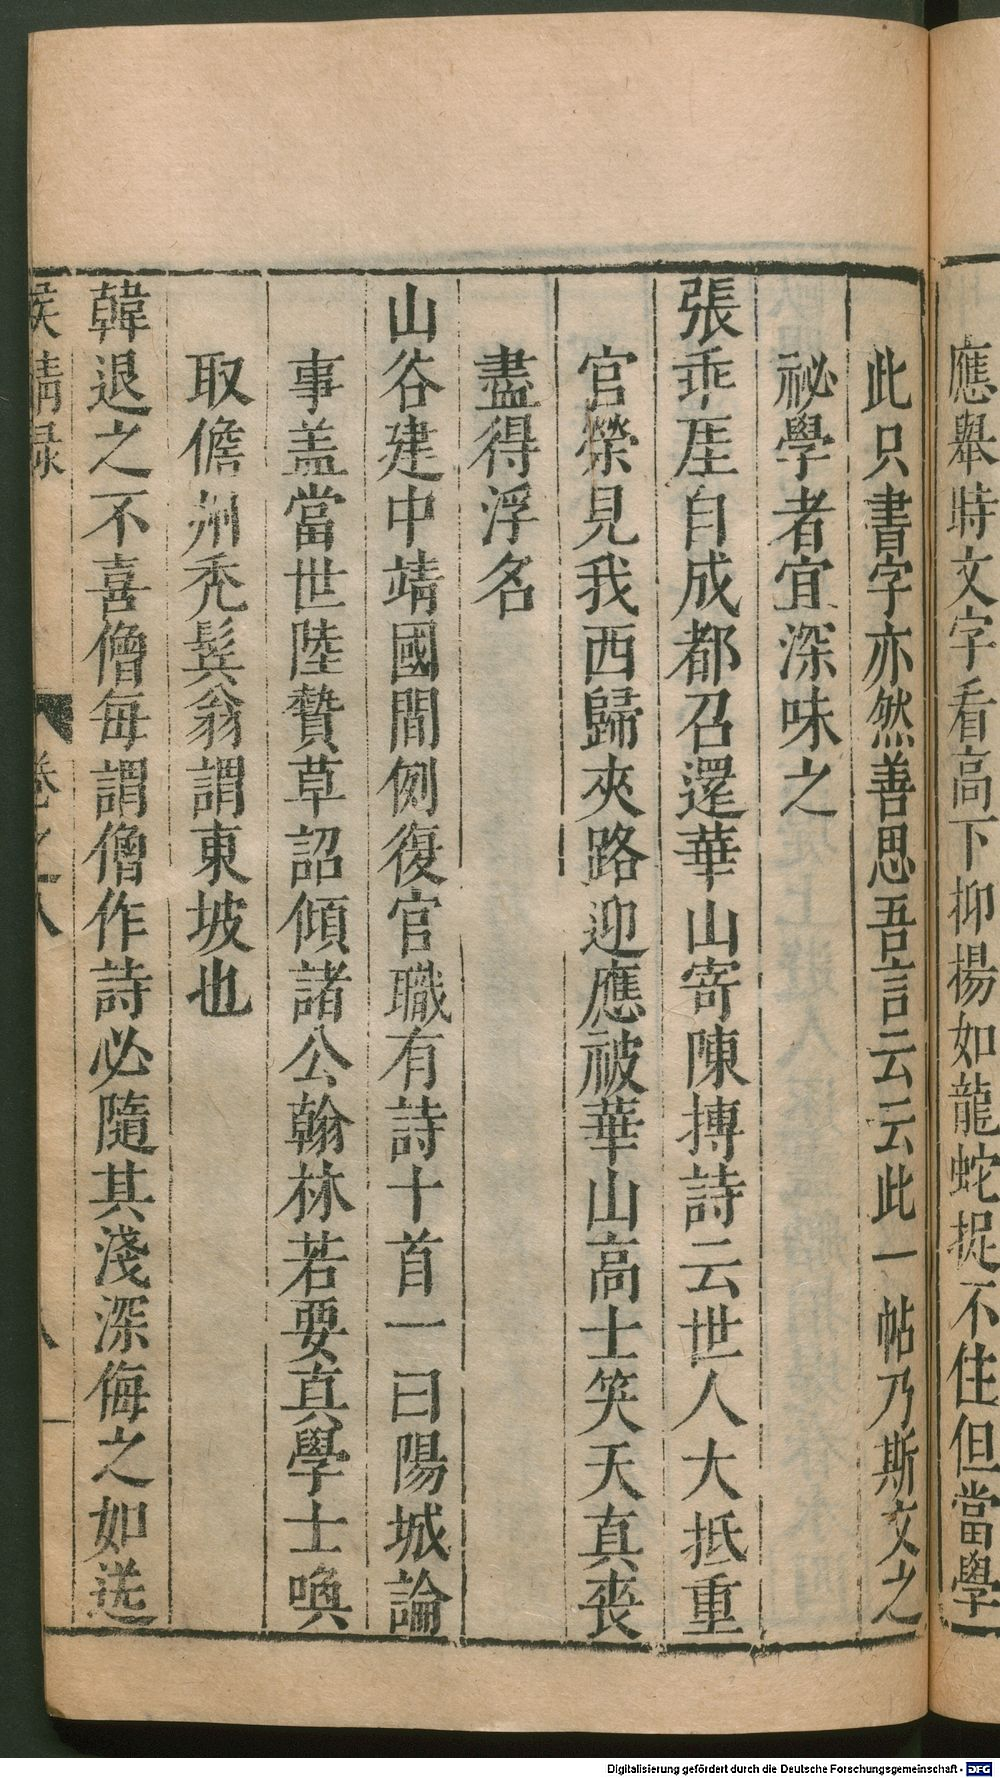 應舉時文字看高下抑揚如龍蛇捉不住但當學
此只書字亦然善思吾言云云此一帖乃斯文之
祕學者宜深味之
張乖厓自成都召還華山寄陳摶詩云世人大抵重
官榮見我西歸夾路迎應被華山高士笑天真喪
盡得浮名
山谷建中靖國間例復官職有詩十首一曰陽城論
事盖當世陸贄草詔傾諸公翰林若要真學士喚
取儋州禿鬂翁謂東坡也
韓退之不喜僧每謂僧作詩必隨其淺深侮之如送
侯鯖录 卷之八 八
Digitalisierung gefördert durch die Deutsche Forschungsgemeinschaft - DFG